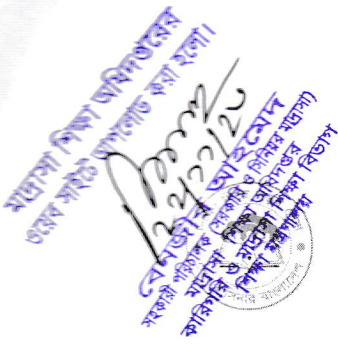 মাদ্রাসা শিক্ষা অধিদপ্তরের
ওয়েব সাইটে আপলোড করা হলো।
আহমেদ
সহকারী পরিচালক (সরকারি ও সিনিয়র মাদ্রাসা)
মাদ্রাসা শিক্ষা অধিদপ্তর
কারিগরি ও মাদ্রাসা শিক্ষা বিভাগ
শিক্ষা মন্ত্রণালয়